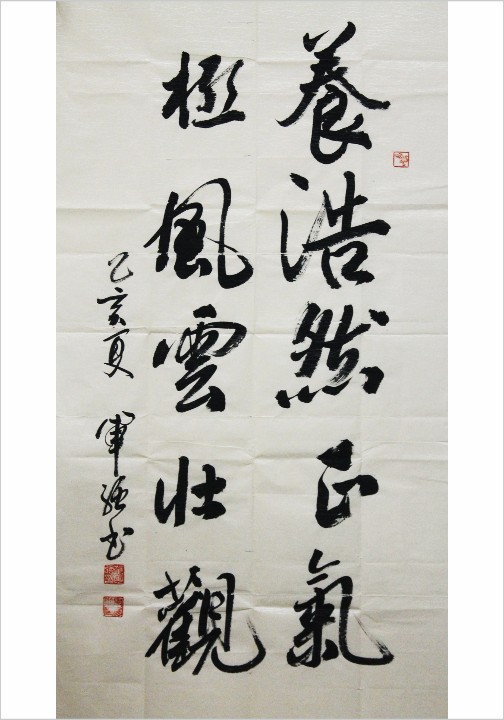 養浩然正氣
極風雲壯觀
乙亥夏 軍強书